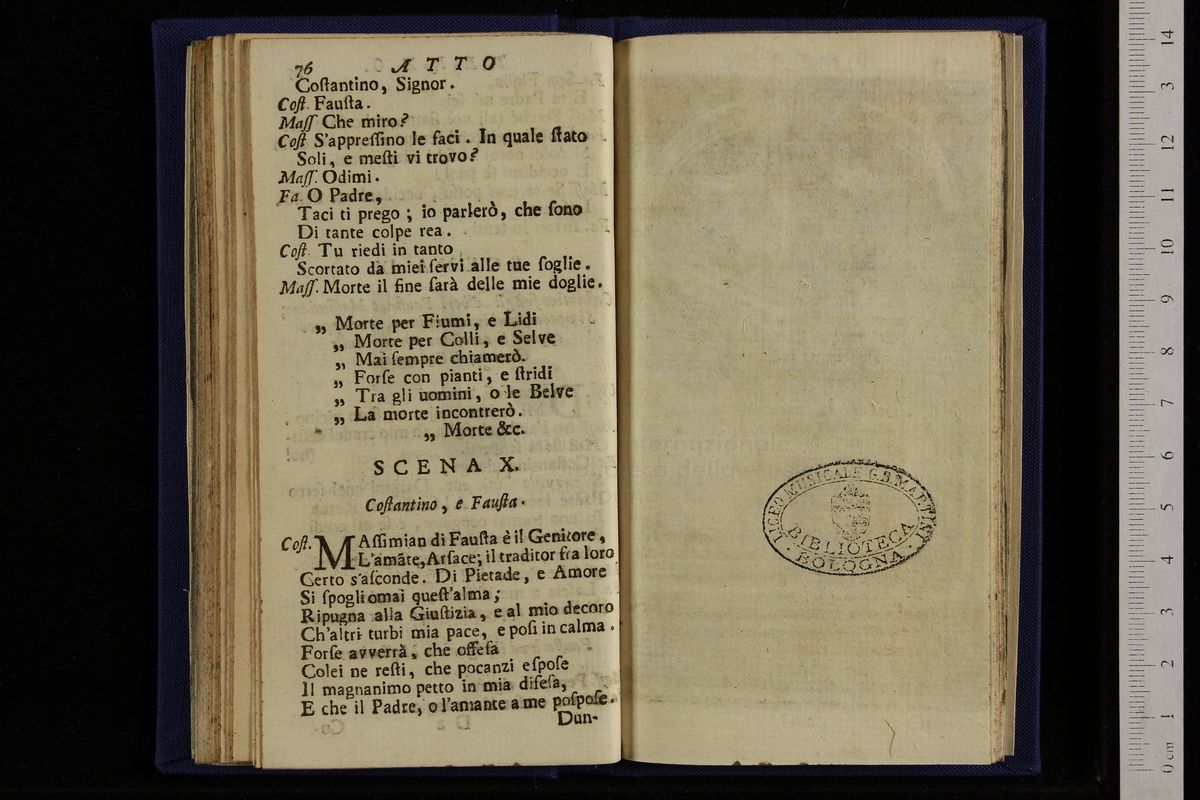 76 ATTO
Coſtantino, Signor.
Coſt. Fauſta.
Maſſ Che miro?
Coſt S'appreſſino le faci. In quale ſtato
Soli, e meſti vi trovo?
Maſſ. Odimi.
Fa. O Padre,
Taci ti prego; io parlerò, che ſono
Di tante colpe rea.
Coſt. Tu riedi in tanto
Scortato da miei ſervi alle tue ſoglie.
Maſſ. Morte il fine ſarà delle mie doglie.
„ Morte per Fiumi, e Lidi
„ Morte per Colli, e Selve
„ Mai ſempre chiamerò.
„ Forſe con pianti, e ſtridi
„ Tra gli uomini, o le Belve
„ La morte incontrerò.
„ Morte &c.
SCENA X.
Coſtantino, e Fauſta.
Coſt. MAſſimian di Fauſta è il Genitore,
L'amāte, Arſace; il traditor fra loro
Certo s'aſconde. Di Pietade, e Amore
Si ſpogli omai queſt'alma;
Ripugna alla Giuſtizia, e al mio decoro
Ch'altri turbi mia pace, e poſi in calma.
Forſe avverrà, che offeſa
Colei ne reſti, che pocanzi eſpoſe
Il magnanimo petto in mia difeſa,
E che il Padre, o l'amante a me poſpoſe.
Dun-
LICEO MUSICALE G.B. MARTINI
BIBLIOTECA
BOLOGNA
0 cm 1 2 3 4 5 6 7 8 9 10 11 12 3 14